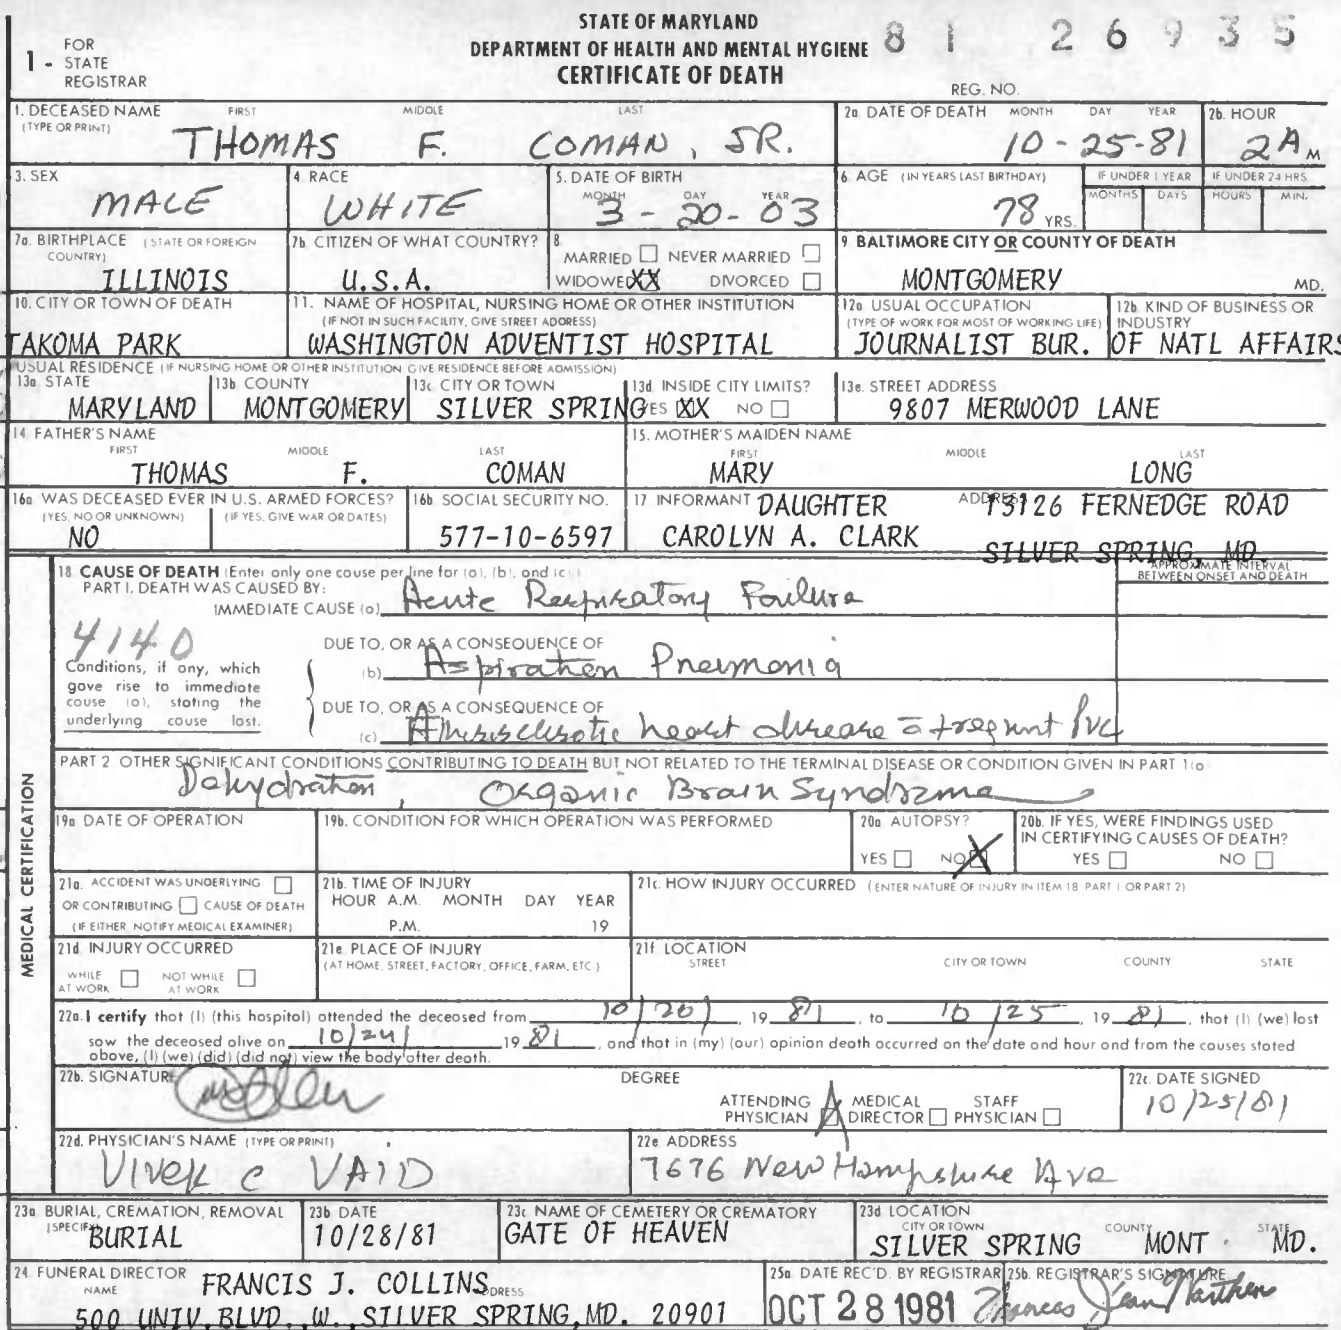 STATE OF MARYLAND
DEPARTMENT OF HEALTH AND MENTAL HYGIENE
CERTIFICATE OF DEATH
81 26935
1 - FOR STATE REGISTRAR
REG. NO.
1. DECEASED NAME (TYPE OR PRINT) FIRST MIDDLE LAST
THOMAS F. COMAN, SR.
2a DATE OF DEATH MONTH DAY YEAR
10-25-81
2b. HOUR
2 A M
3. SEX
MALE
4. RACE
WHITE
5. DATE OF BIRTH MONTH DAY YEAR
3-20-03
6. AGE (IN YEARS LAST BIRTHDAY)
78 YRS.
IF UNDER 1 YEAR MONTHS DAYS
IF UNDER 24 HRS HOURS MIN.
7a. BIRTHPLACE (STATE OR FOREIGN COUNTRY)
ILLINOIS
7b. CITIZEN OF WHAT COUNTRY?
U.S.A.
8 MARRIED NEVER MARRIED
WIDOWED XX DIVORCED
9. BALTIMORE CITY OR COUNTY OF DEATH
MONTGOMERY MD.
10. CITY OR TOWN OF DEATH
TAKOMA PARK
11. NAME OF HOSPITAL, NURSING HOME OR OTHER INSTITUTION
(IF NOT IN SUCH FACILITY, GIVE STREET ADDRESS)
WASHINGTON ADVENTIST HOSPITAL
12a USUAL OCCUPATION
(TYPE OF WORK FOR MOST OF WORKING LIFE)
12b KIND OF BUSINESS OR INDUSTRY
JOURNALIST BUR. OF NATL AFFAIRS
USUAL RESIDENCE (IF NURSING HOME OR OTHER INSTITUTION GIVE RESIDENCE BEFORE ADMISSION)
13a STATE
MARYLAND
13b COUNTY
MONTGOMERY
13c CITY OR TOWN
SILVER SPRING
13d INSIDE CITY LIMITS?
YES XX NO
13e. STREET ADDRESS
9807 MERWOOD LANE
14 FATHER'S NAME FIRST MIDDLE LAST
THOMAS F. COMAN
15. MOTHER'S MAIDEN NAME FIRST MIDDLE LAST
MARY LONG
16a WAS DECEASED EVER IN U.S. ARMED FORCES?
(YES, NO OR UNKNOWN) (IF YES, GIVE WAR OR DATES)
NO
16b SOCIAL SECURITY NO.
577-10-6597
17 INFORMANT DAUGHTER
CAROLYN A. CLARK
ADDRESS 13126 FERNEDGE ROAD
SILVER SPRING, MD.
18 CAUSE OF DEATH (Enter only one cause per line for (a), (b), and (c))
APPROXIMATE INTERVAL BETWEEN ONSET AND DEATH
PART I. DEATH WAS CAUSED BY:
IMMEDIATE CAUSE (a) Acute Respiratory Failure
4140
DUE TO, OR AS A CONSEQUENCE OF
(b) Aspiration Pneumonia
Conditions, if any, which
gave rise to immediate
cause (a), stating the
underlying cause last.
DUE TO, OR AS A CONSEQUENCE OF
(c) heart disease c̄ frequent PVC
PART 2 OTHER SIGNIFICANT CONDITIONS CONTRIBUTING TO DEATH BUT NOT RELATED TO THE TERMINAL DISEASE OR CONDITION GIVEN IN PART 1(a
Dehydration, Organic Brain Syndrome
MEDICAL CERTIFICATION
19a DATE OF OPERATION
19b. CONDITION FOR WHICH OPERATION WAS PERFORMED
20a AUTOPSY?
YES NO X
20b. IF YES, WERE FINDINGS USED IN CERTIFYING CAUSES OF DEATH?
YES NO
21a. ACCIDENT WAS UNDERLYING
OR CONTRIBUTING CAUSE OF DEATH
(IF EITHER, NOTIFY MEDICAL EXAMINER)
21b. TIME OF INJURY
HOUR A.M. MONTH DAY YEAR
P.M. 19
21c. HOW INJURY OCCURRED (ENTER NATURE OF INJURY IN ITEM 18 PART 1 OR PART 2)
21d INJURY OCCURRED
WHILE AT WORK NOT WHILE AT WORK
21e PLACE OF INJURY
(AT HOME, STREET, FACTORY, OFFICE, FARM, ETC.)
21f LOCATION
STREET CITY OR TOWN COUNTY STATE
22a. I certify that (I) (this hospital) attended the deceased from 10/20/, 19 81, to 10/25, 19 81, that (I) (we) last
saw the deceased alive on 10/24/ 19 81, and that in (my) (our) opinion death occurred on the date and hour and from the causes stated
above, (I) (we) (did) (did not) view the body after death.
22b. SIGNATURE
DEGREE
ATTENDING PHYSICIAN MEDICAL DIRECTOR STAFF PHYSICIAN
22c. DATE SIGNED
10/25/81
22d. PHYSICIAN'S NAME (TYPE OR PRINT)
VIVEK C VAID
22e ADDRESS
7676 New Hampshire Ave
23a BURIAL, CREMATION, REMOVAL (SPECIFY)
BURIAL
23b DATE
10/28/81
23c NAME OF CEMETERY OR CREMATORY
GATE OF HEAVEN
23d LOCATION CITY OR TOWN COUNTY STATE
SILVER SPRING MONT. MD.
24 FUNERAL DIRECTOR
NAME FRANCIS J. COLLINS ADDRESS
500 UNIV. BLVD. W., SILVER SPRING, MD. 20901
25a DATE REC'D. BY REGISTRAR
OCT 28 1981
25b. REGISTRAR'S SIGNATURE
Frances Jean